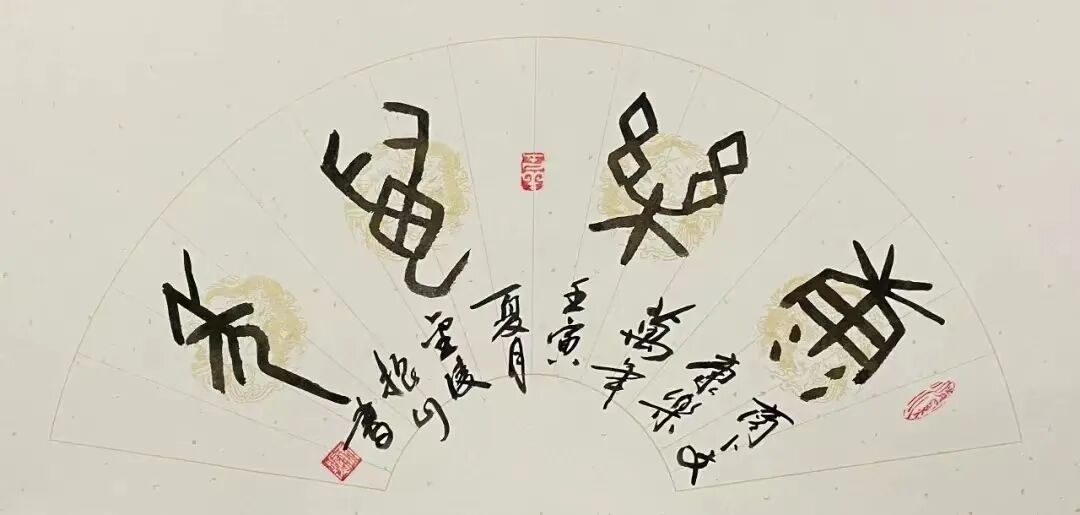 康樂萬年
商卜文
康樂
萬年
壬寅
夏月
金陵
山
書